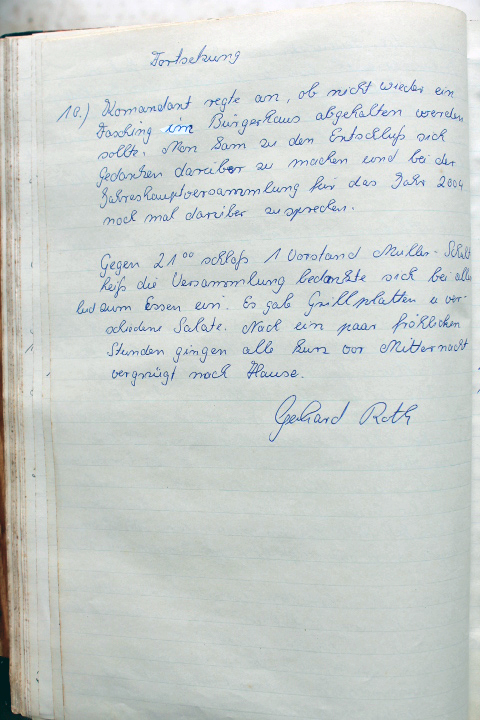 Fortsetzung
10.) Komandant regte an, ob nicht wieder ein
Fasching im Bürgerhaus abgehalten werden
sollte. Man kam zu den Entschluß sich
gedanken darüber zu machen und bei der
Jahreshauptversammlung für das Jahr 2004
noch mal darüber zu sprechen.
Gegen 21⁰⁰ schloß 1 Vorstand Müller-Schult
heiß die Versammlung bedankte sich bei allen
lud zum Essen ein. Es gab Grillplatten u ver-
schiedene Salate. Nach ein paar fröhlichen
Stunden gingen alle kurz vor Mitternacht
vergnügt nach Hause.
Gerhard Roth